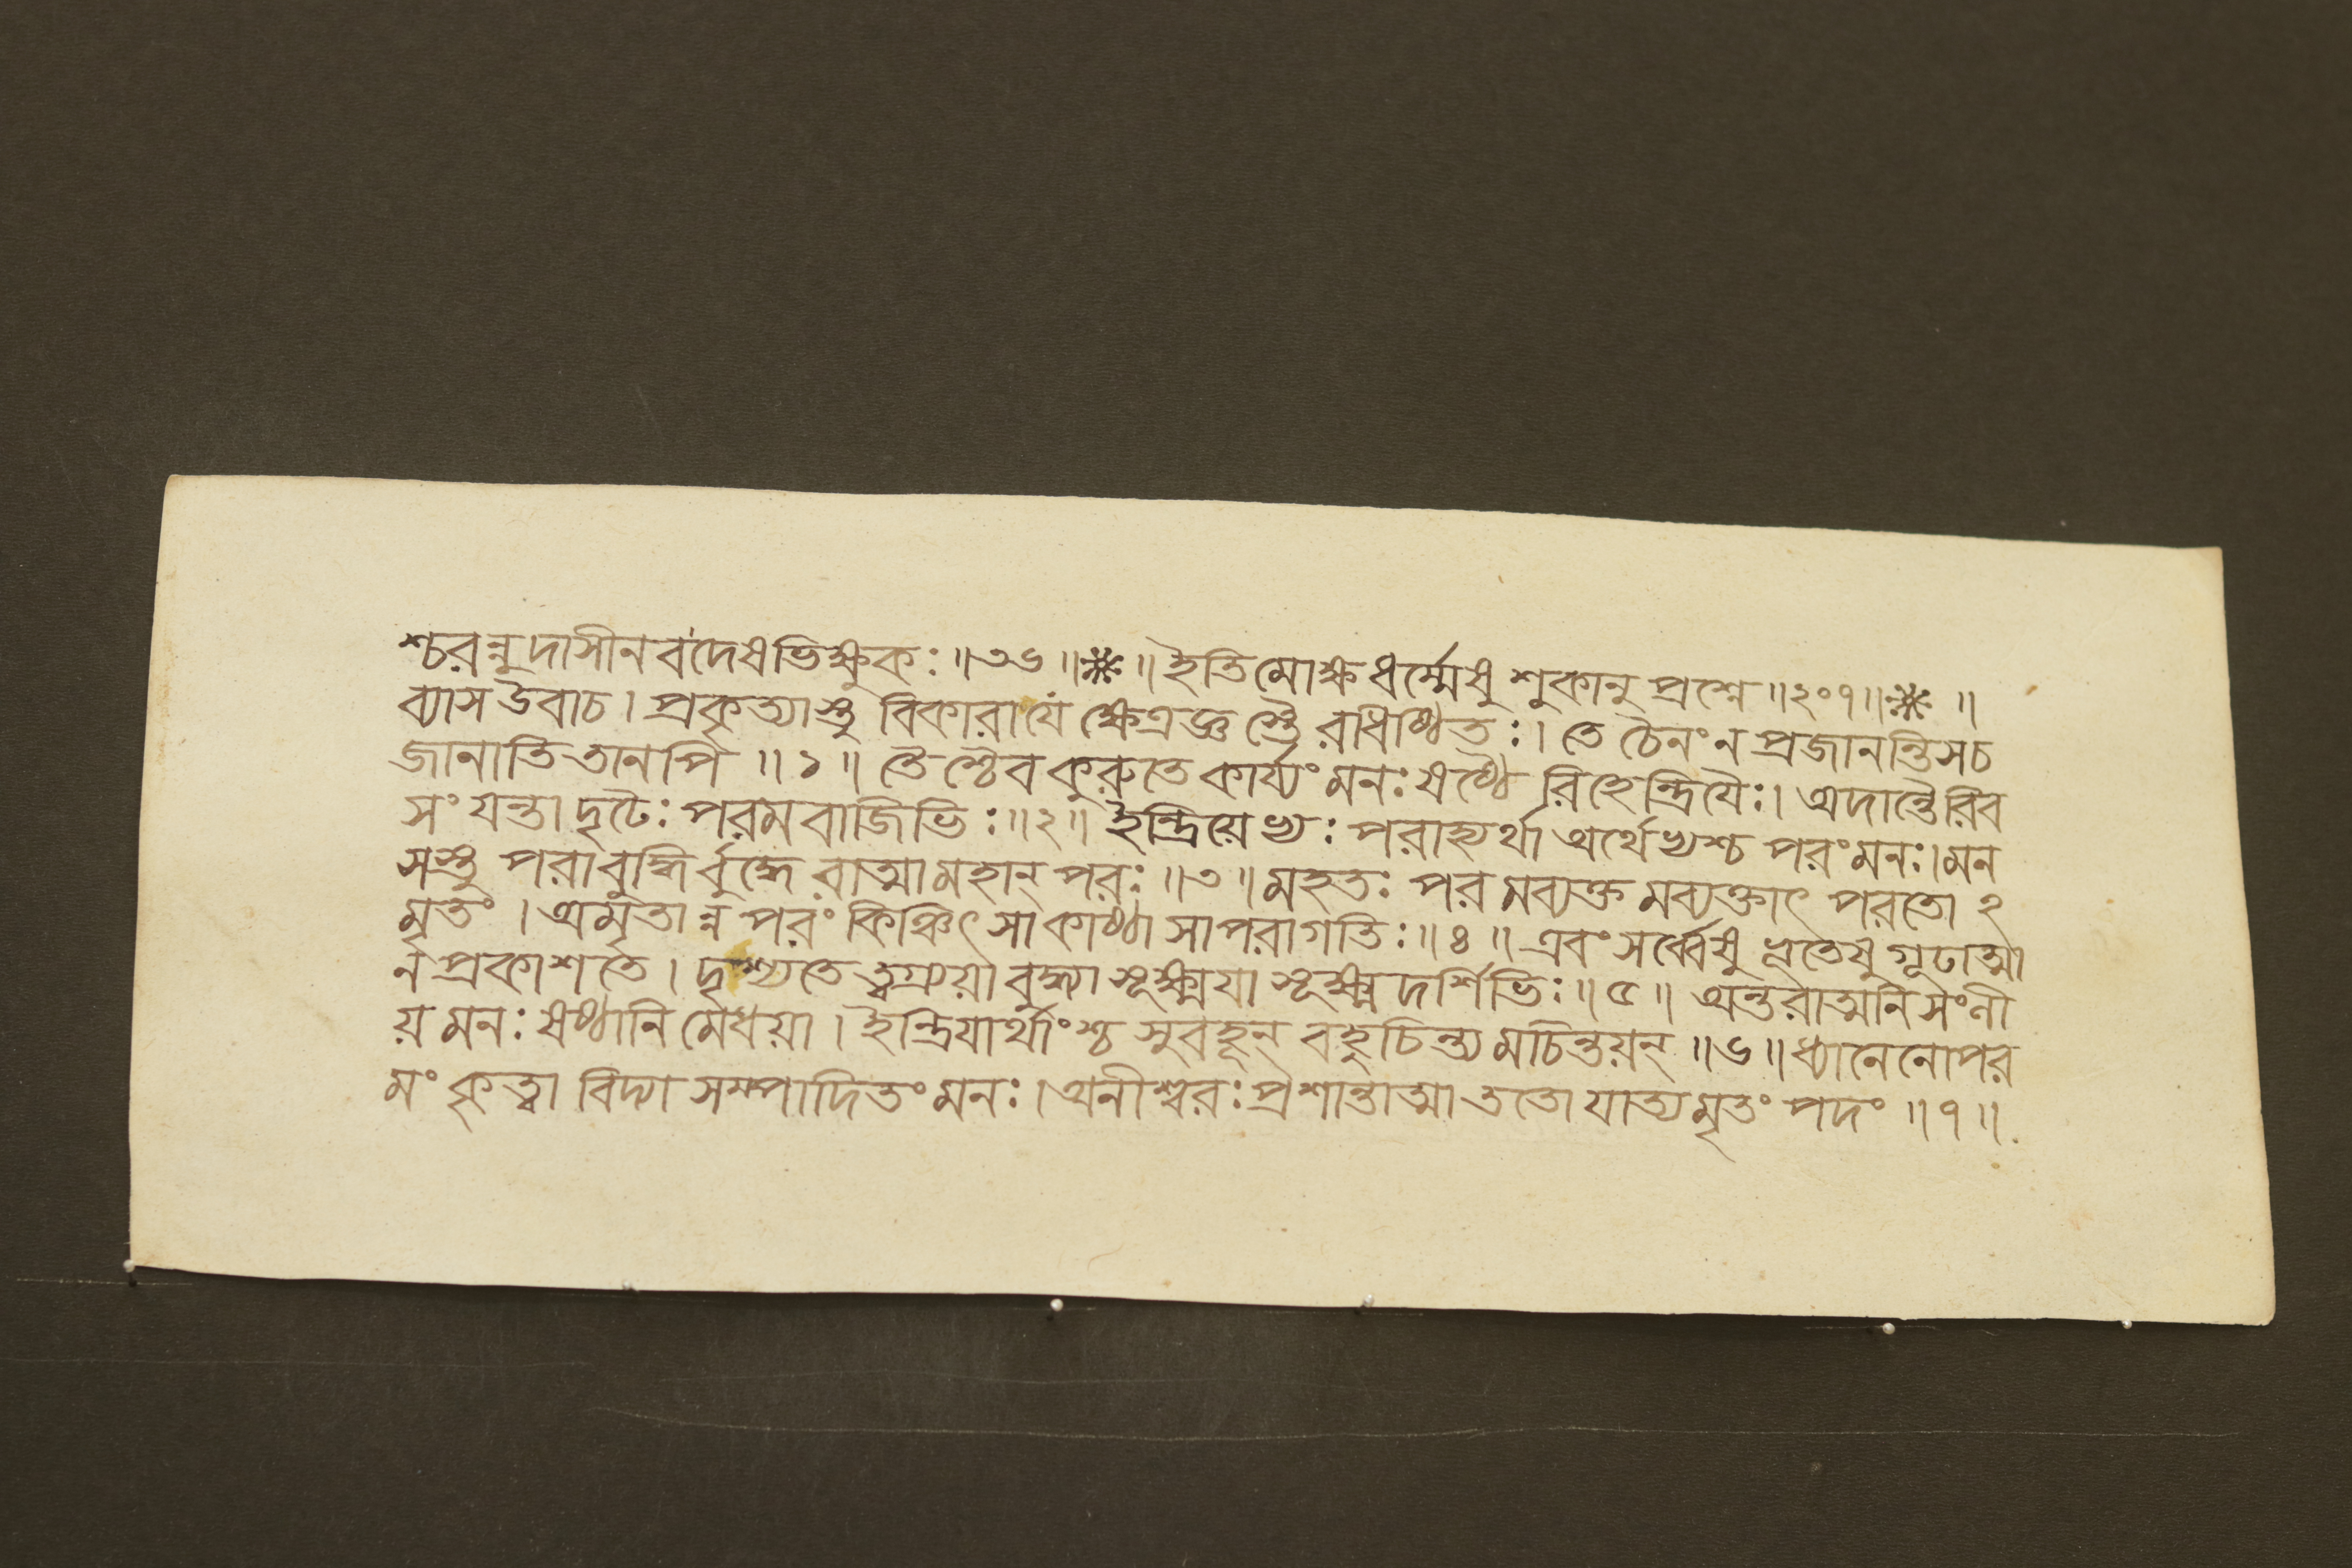 শ্চরন্নুদাসীনবদেষভিক্ষুকঃ॥৩৬॥❋॥ইতিমোক্ষধর্ম্মেষুশুকানুপ্রশ্নে॥২০৭॥❋॥
ব্যাসউবাচ।প্রকৃত্যাস্তুবিকারাযেক্ষেত্রজ্ঞস্তৈরধিষ্ঠিতঃ।তেচৈনংনপ্রজানন্তিসচ
জানাতিতানপি॥১॥তৈশ্চৈবকুরুতেকার্য্যংমনঃষষ্ঠৈরিহেন্দ্রিযৈঃ।অদান্তৈরিব
সংযন্তাদৃঢৈঃপরমবাজিভিঃ॥২॥ইন্দ্রিয়েভ্যঃপরাহ্যর্থাঅর্থেভ্যশ্চপরংমনঃ।মন
সস্তুপরাবুদ্ধির্বুদ্ধেরাত্মামহান্পরঃ॥৩॥মহতঃপরমব্যক্তমব্যক্তাৎপরতোঽ
মৃতং।অমৃতান্নপরংকিঞ্চিৎসাকাষ্ঠাসাপরাগতিঃ॥৪॥এবংসর্ব্বেষুভূতেষুগূঢাত্মা
নপ্রকাশতে।দৃশ্যতেত্বগ্র্যয়াবুদ্ধ্যাসূক্ষ্ময়াসূক্ষ্মদর্শিভিঃ॥৫॥অন্তরাত্মনিসংনী
য়মনঃষষ্ঠানিমেধয়া।ইন্দ্রিযার্থাংশ্চসুবহূন্বহুচিন্ত্যমচিন্তয়ন্॥৬॥ধ্যানেনোপর
মংকৃত্বাবিদ্যাসম্পাদিতংমনঃ।অনীশ্বরঃপ্রশান্তাত্মাততোযাত্যমৃতংপদং॥৭॥